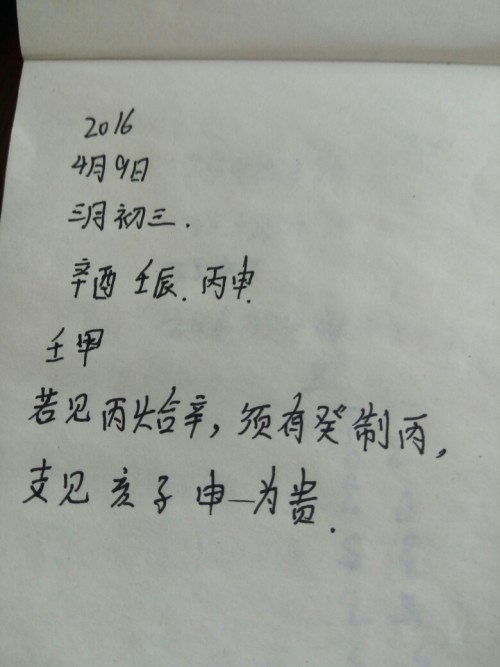 2016
4月9日
三月初三.
辛酉 壬辰. 丙申.
壬甲
若见丙火合辛,须有癸制丙,
支见亥子申一为贵.